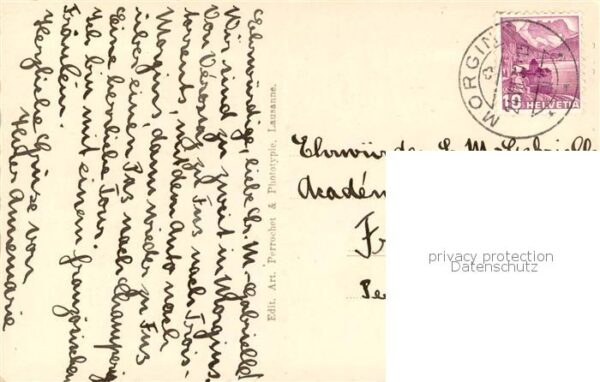 Ehrwürdige, liebe Sr. M. Gabrielle!
Wir sind zu zweit in Morgins.
Von Vérossaz zu Fuss nach Trois-
torrents, mit dem Auto nach
Morgins, dann wieder zu Fuss
über einen Pas nach Champéry
Eine herrliche Tour.
Ich bin mit einem französischen
Fräulein.
Herzliche Grüsse von
Annemarie
Edit. Art. Perrochet & Phototypie, Lausanne.
MORGINS
10 HELVETIA
Ehrwürd. Sr. M. Gabrielle
Acadé
Fr
Pe
privacy protection
Datenschutz